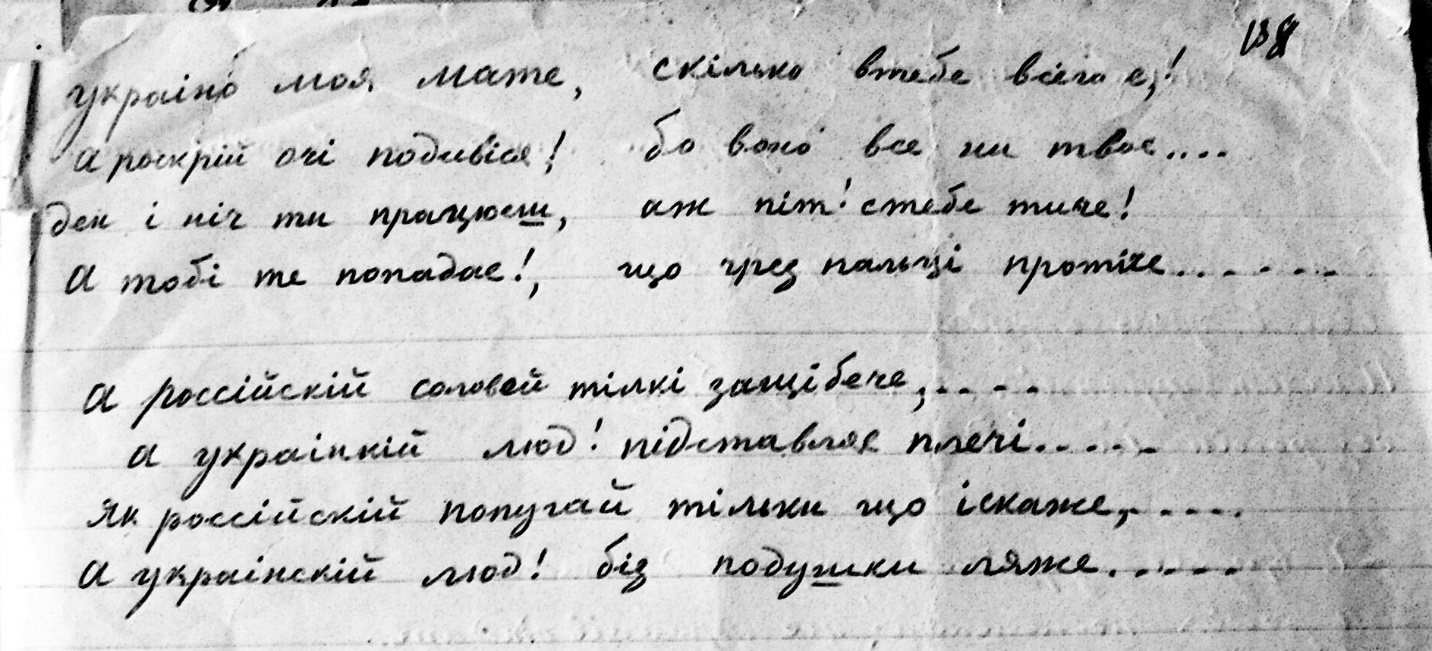 138
україно моя мате, скілько втебе всего е,!
а роскрій очі подивіся! бо воно все ни твое....
ден і ніч ти працюеш, аж піт! стебе тиче!
а тобі те попадае!, що чрез пальці протіче.......
а россійскій соловей тілкі защібече,....
а украінкій люд! підставляе плечі.....
як россійскій попугай тільки що іскаже,.....
а украінскій люд! біз подушки ляже......